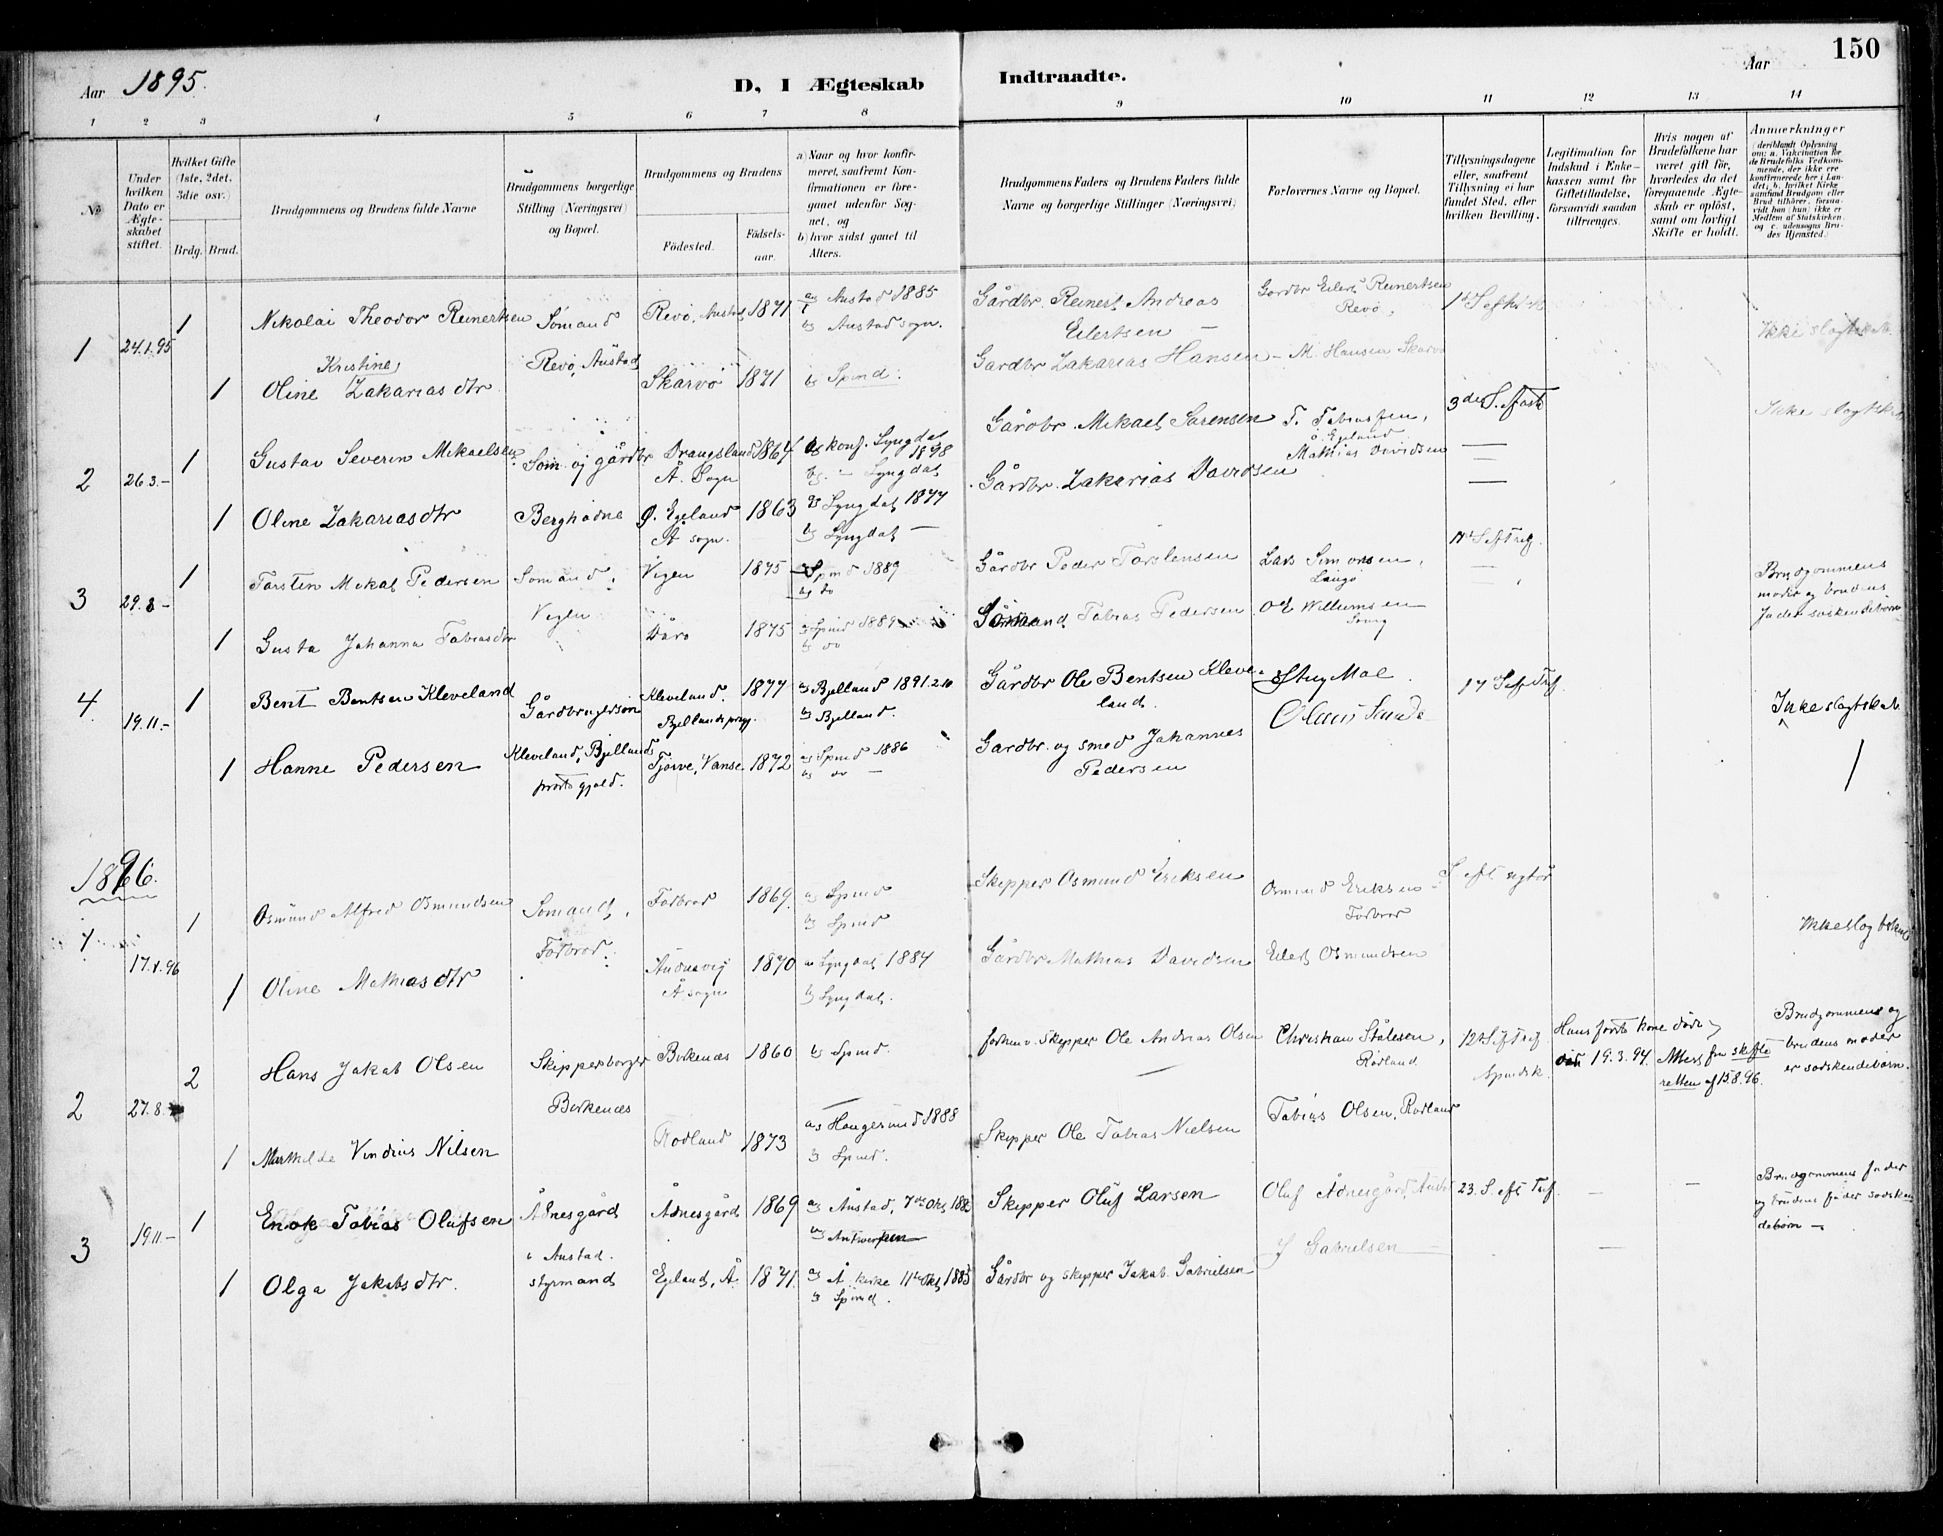 150
Aar 1895.
D, I Ægteskab Indtraadte.
Aar
1 2 3 4 5 6 7 8 9 10 11 12 13 14
No
Under hvilken Dato er Ægteskabet stiftet.
Hvilket Gifte (1ste, 2det, 3die osv.)
Brdg. Brud.
Brudgommens og Brudens fulde Navne
Brudgommens borgerlige Stilling (Næringsvei) og Bopæl.
Brudgommens og Brudens
Födested. Födsels-aar.
a) Naar og hvor konfirmeret, saafremt Konfirmationen er foregaaet udenfor Sognet, og
b) hvor sidst gaaet til Alters.
Brudgommens Faders og Brudens Faders fulde Navne og borgerlige Stillinger (Næringsvei)
Forlovernes Navne og Bopæl.
Tillysningsdagene eller, saafremt Tillysning ei har fundet Sted, efter hvilken Bevilling.
Legitimation for Indskud i Enkekassen samt for Giftetilladelse, forsaavidt saadan tiltrænges.
Hvis nogen af Brudefolkene har været gift för, hvorledes da det foregaaende Ægteskab er oplöst, samt om lovligt Skifte er holdt.
Anmerkninger
(deriblandt Oplysning om: a. Vakcination for de Brudefolks Vedkommende, der ikke ere konfirmerede her i Landet; b. hvilket Kirkesamfund Brudgom eller Brud tilhörer, forsaavidt han (hun) ikke er Medlem af Statskirken, og c. udensogns Brudes Hjemsted.)
1 24.1.95 1 Nikolai Theodor Reinertsen Sömand Revö, Austad 1871 a) Austad 1885
b) Austad sogn.
Gårdbr. Reinert Andreas Eilertsen —
Gardbr Eilert Reinertsen Revö,
Revö, Austad
Kristine,
1 Oline Zakariasdtr Skarvö 1871 b) Spind.
Gardbr Zakarias Hansen — M. Hansen Skarvö
Ikke slagtskab.
2 26.3.— 1 Gustav Severin Mikaelsen Söm. og gårdbr Drangsland Å. Sogn 1864 konf. Lyngdal
b) — Lyngdal
Gårdbr. Mikael Sörensen
3de S. i faste
Ikke slagtskab
1 Oline Zakariasdtr Berghödne Ö. Egeland Å sogn. 1863 a) Lyngdal 1877
b) Lyngdal —
Gårdbr. Zakarias Davidsen Mathias Davidsen
3 29.8— 1 Torsten Mikal Pedersen Sömand, Vigen 1875 Spind 1889
b) do
Gårdbr Peder Torstensen Lars Simonsen,
Vigen
1 Gusta Johanna Tobiasdtr 1875 a) Spind 1889
b) do
Tobias Pedersen Ole Willumsen
Brudgommens moder og brudens fader söskendebörn
4. 19.11.— 1 Bent Bentsen Kleveland Gårdbrugersön Kleveland Bjellands prgj. 1877 a) Bjelland 1891.2.10
b) Bjelland.
Gårdbr Ole Bentsen Kleveland.
17 S. e. Tref.
Ikke slagtskab
Kleveland, Bjellands prestegjeld.
1 Hanne Pedersen Tjörve, Vanse 1872 a) Spind 1886
b) do —
Gardbr. og smed Johannes Pedersen
1896.
1 17.1.96 1 Osmund Alfred Osmundsen Sömand, Förbrod 1869. a) Spind
b) Spind
Skipper Osmund Eriksen Osmund Eriksen
Ikke slagtskab
1 Oline Mathiasdtr Å. sogn 1870 a) Lyngdal 1884
b) Lyngdal.
Gårdbr. Mathias Davidsen Eilert Osmundsen
2 27.8.— 2 Hans Jakob Olsen Skipperborger Birkenæs 1860 b) Spind.
forhenv. Skipper Ole Andreas Olsen Christian Stålesen, Rödland
12 S. eft Tref.
Spindsk.
Hans förste kone döde 19.3.94. Attest fra skifteretten af 15.8.96.
Brudgommens og brudens moder er södskendebörn.
Birkenæs
1 Mathilde Nilsen Rödland 1873 a) Haugesund 1888
b) Spind.
Skipper Ole Tobias Nielsen Tobias Olsen, Rödland
3 19.11— 1 Enok Tobias Olufsen Ådnesgård Ådnesgård 1869 a) Austad, 7de Okt. 1883
b) Antwerpen
Skipper Oluf Larsen Oluf Ådnesgård, Austad
23. S. eft Tref. — —
Brudgommens fader og brudens fader sodskendebörn —
i Austad. styrmand
1 Olga Jakobsdtr. Egland, Å. 1871. a) Å kirke 11te Okt. 1885
b) Spind.
Gårdbr og skipper Jakob Gabrielsen J Gabrielsen —